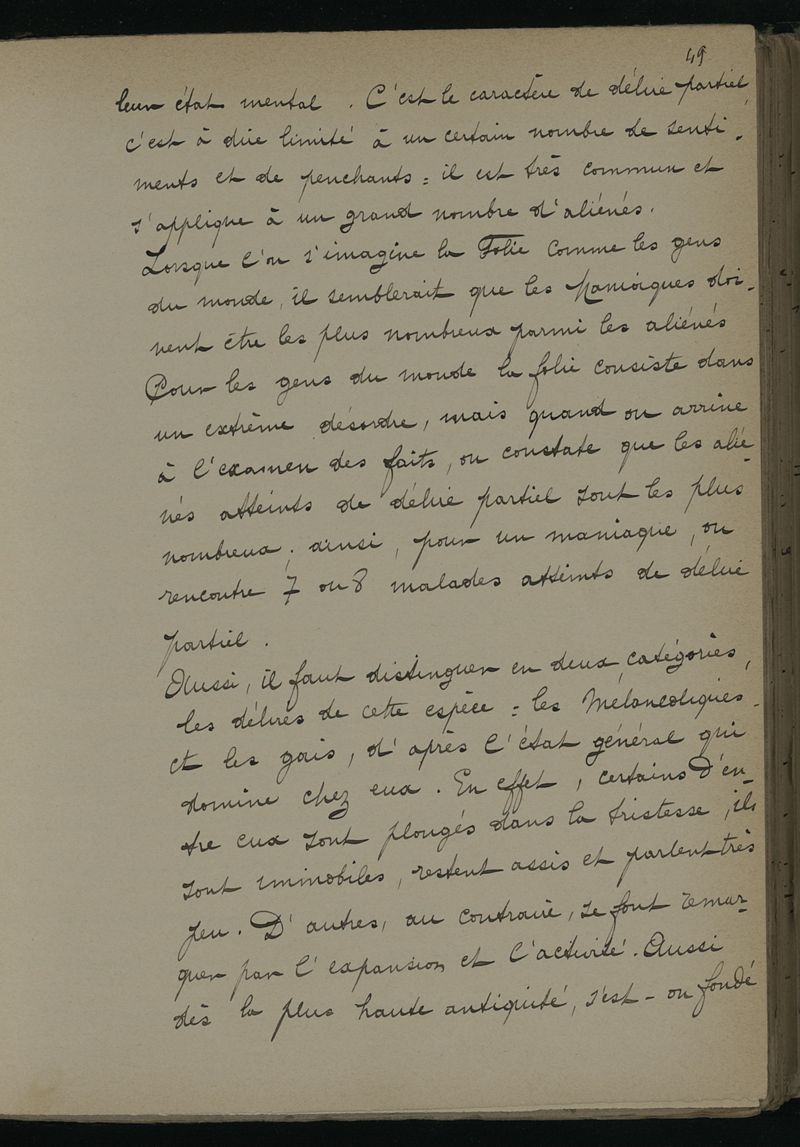 49
leur état mental. C'est le caractère de délire partiel,
c'est à dire limité à un certain nombre de senti-
ments et de penchants : il est très commun et
s'applique à un grand nombre d'aliénés.
Lorsque l'on s'imagine la Folie comme les gens
du monde, il semblerait que les Maniaques doi-
vent être les plus nombreux parmi les aliénés
Pour les gens du monde la folie consiste dans
un extrême désordre, mais quand on arrive
à l'examen des faits, on constate que les alié-
nés atteints de délire partiel sont les plus
nombreux ; ainsi, pour un maniaque, on
rencontre 7 ou 8 malades atteints de délire
partiel.
Aussi, il faut distinguer en deux catégories,
les délires de cette espèce : les Mélancoliques
et les gais, d'après l'état général qui
domine chez eux. En effet, certains d'en-
tre eux sont plongés dans la tristesse, ils
sont immobiles, restent assis et parlent très
peu. D'autres, au contraire, se font remar-
quer par l'expansion et l'activité. Aussi
dès la plus haute antiquité, s'est-on fondé